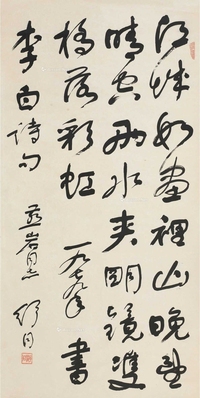 江城如畫裡山晚望
晴空兩水夾明鏡雙
橋落彩虹 一九七九年 書
李白詩句 岩同志 舒同